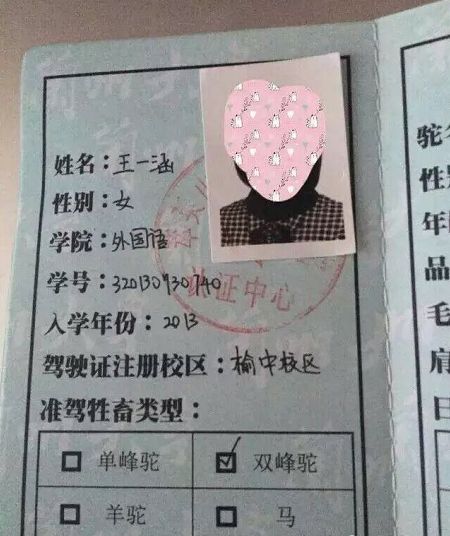 姓名：王一涵
性别：女
学院：外国语
学号：320130930740
入学年份：2013
驾驶证注册校区：榆中校区
准驾牲畜类型：
☐ 单峰驼
☑ 双峰驼
☐ 羊驼
☐ 马
认证中心
驼名
性
年
品
毛
肩
日